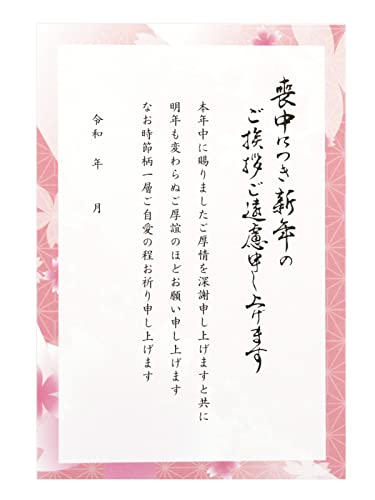 喪中につき新年の
ご挨拶ご遠慮申し上げます
本年中に賜りましたご厚情を深謝申し上げますと共に
明年も変わらぬご厚誼のほどお願い申し上げます
なお時節柄一層ご自愛の程お祈り申し上げます
令和 年 月